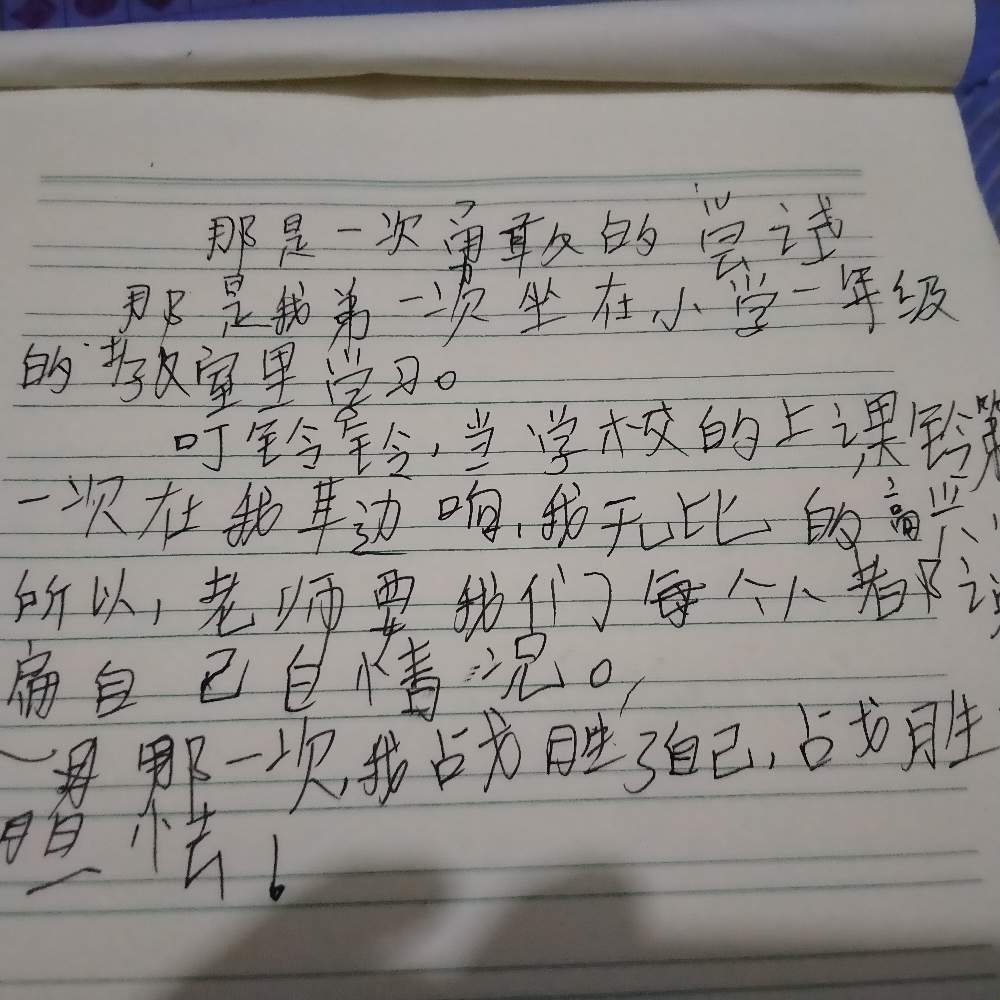 那是一次勇敢的尝试
那是我第一次坐在小学一年级
的教室里学习。
叮铃铃,当学校的上课铃第
一次在我耳边响,我无比的高兴、
所以,老师要我们每个人都
自己自情况。
那一次,我战胜了自己,战胜
胆怯!